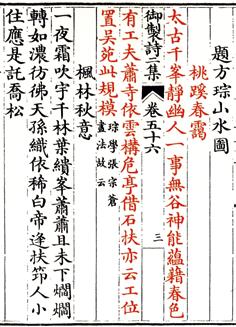 題方琮小水圖
桃蹊春靄
太古千峯靜幽人一事無谷神能蘊藉春色
御製詩二集 卷五十六 三
有工夫蕭寺依雲構危亭借石扶亦云工位
置吳苑此規模 琮學張宗蒼畫法故云
楓林秋意
一夜霜吹宇千林葉纈峯蕭蕭且未下爓爓
轉如濃彷彿天孫織依稀白帝逢扶笻人小
住應是託喬松